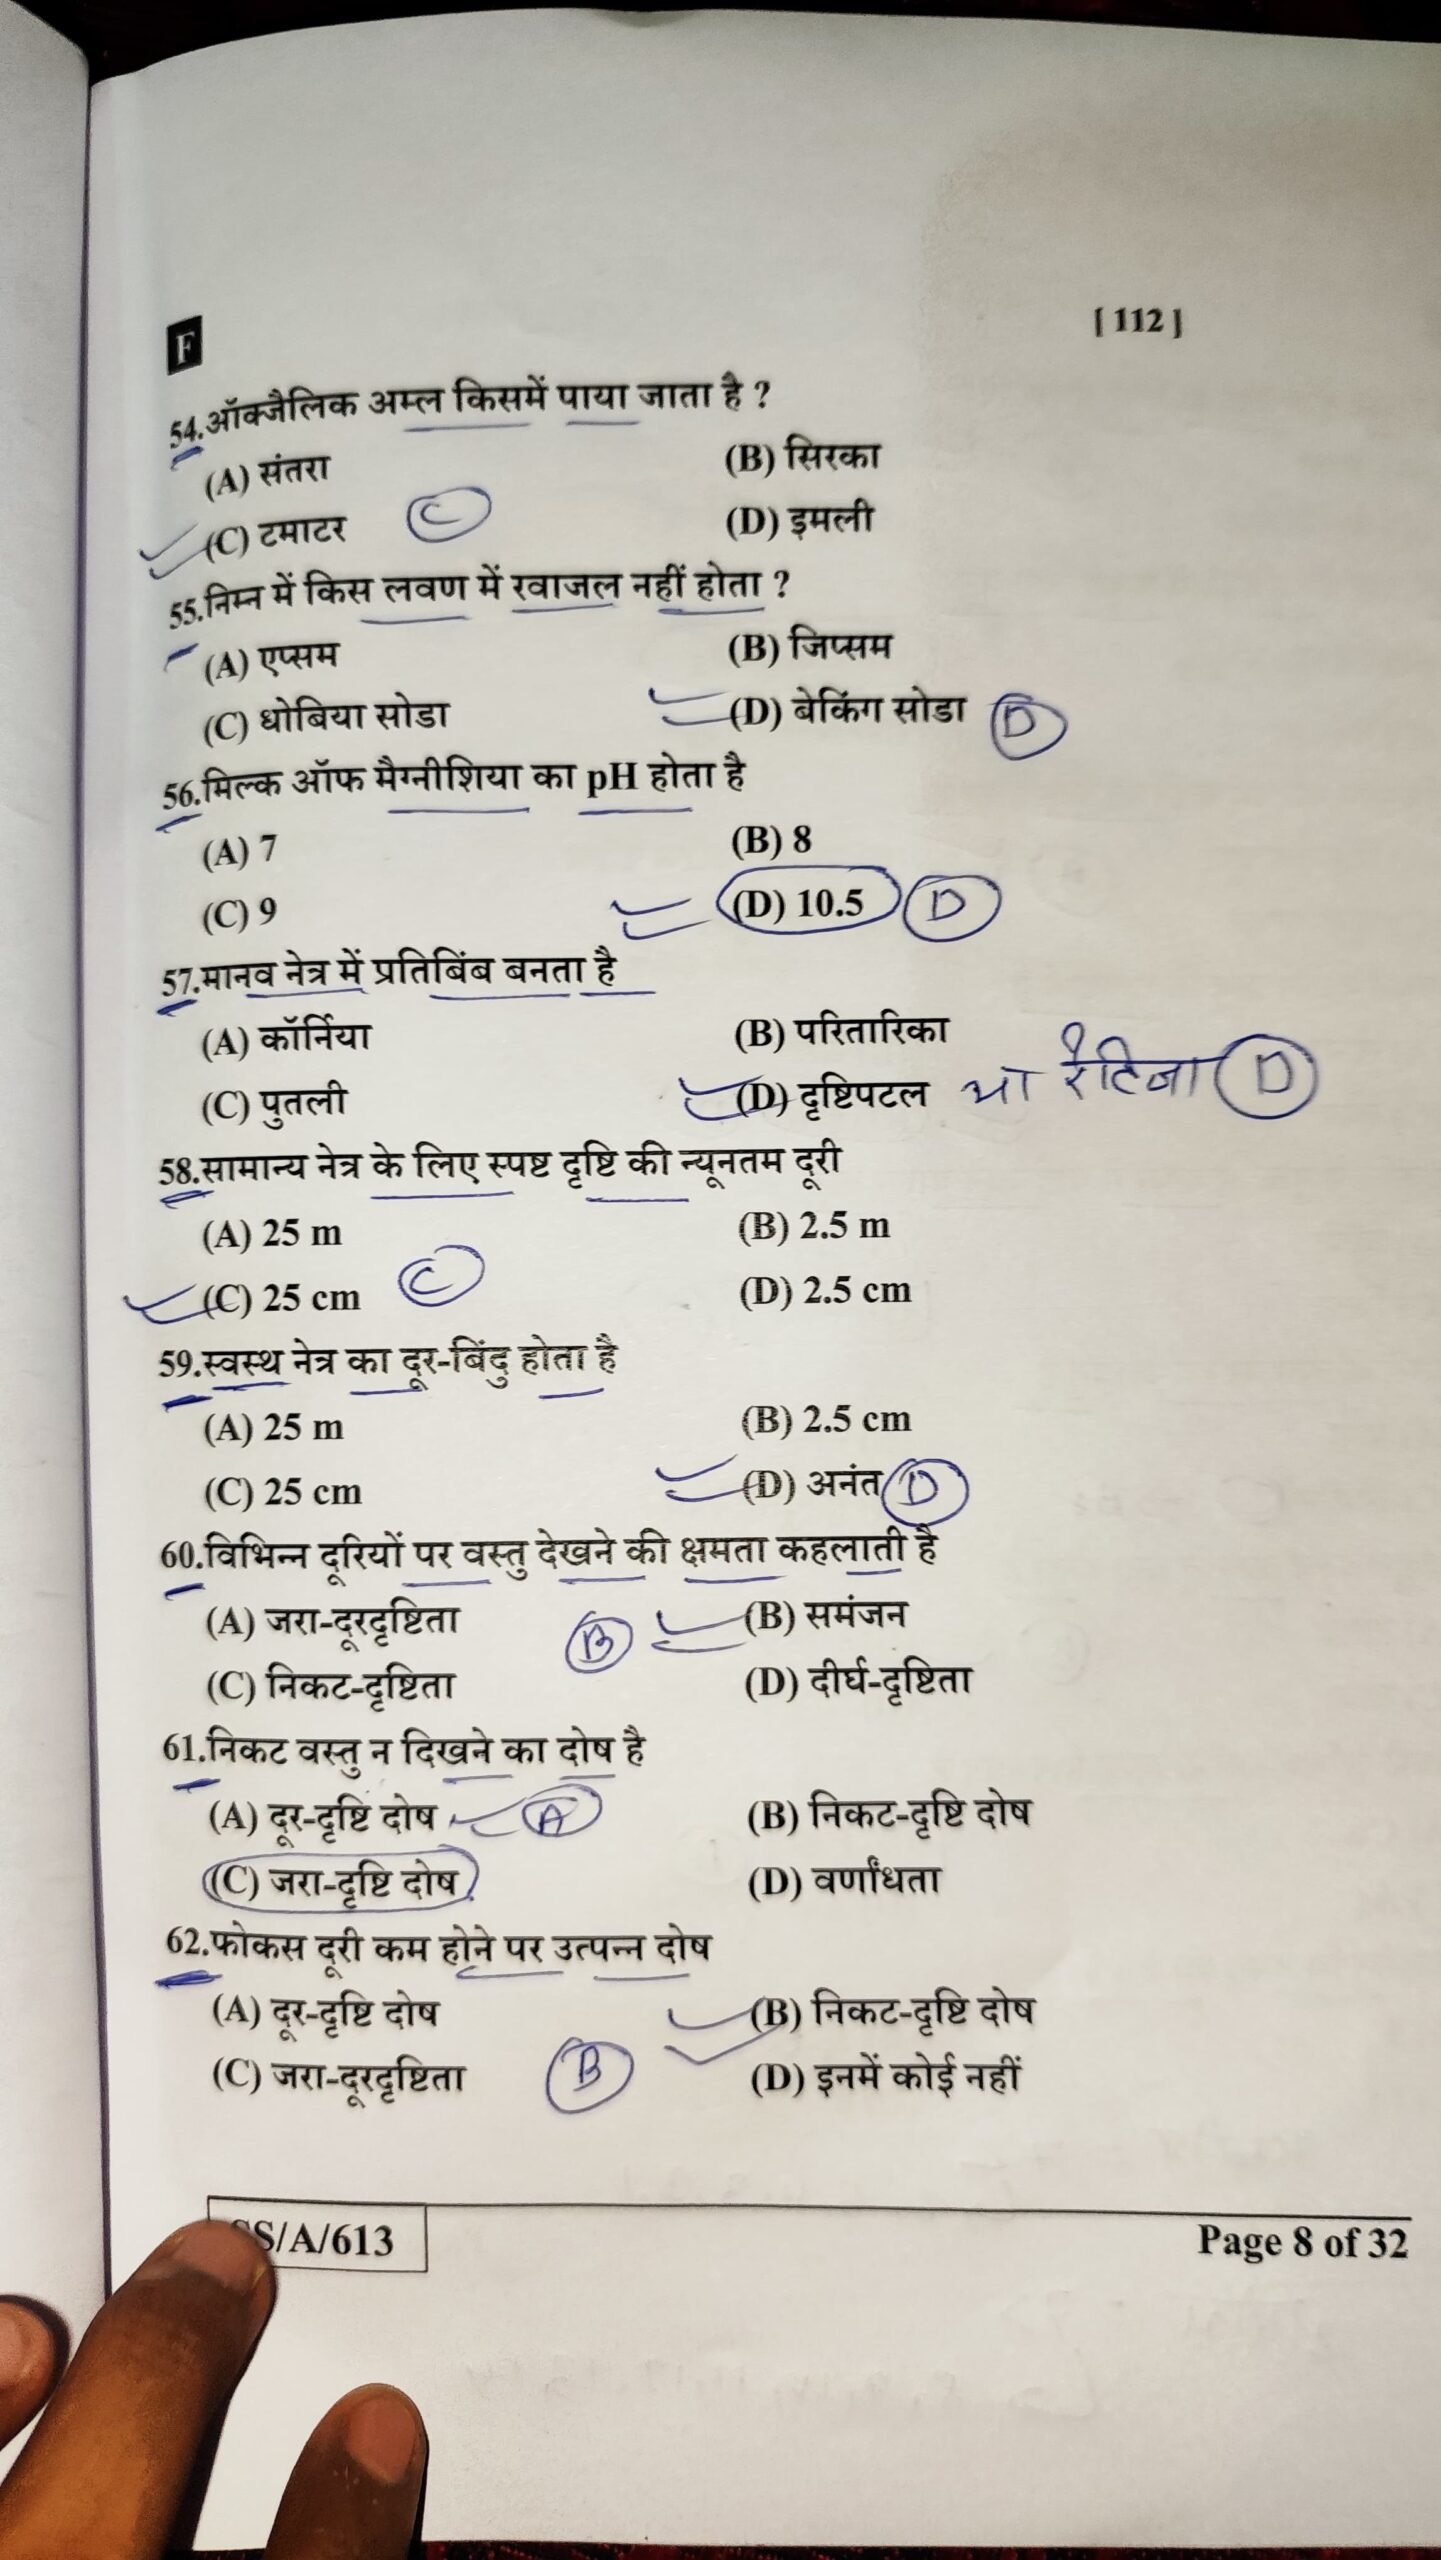 F
[ 112 ]
54.ऑक्जैलिक अम्ल किसमें पाया जाता है ?
(A) संतरा (B) सिरका
(C) टमाटर C (D) इमली
55.निम्न में किस लवण में रवाजल नहीं होता ?
(A) एप्सम (B) जिप्सम
(C) धोबिया सोडा (D) बेकिंग सोडा D
56.मिल्क ऑफ मैग्नीशिया का pH होता है
(A) 7 (B) 8
(C) 9 (D) 10.5 D
57.मानव नेत्र में प्रतिबिंब बनता है
(A) कॉर्निया (B) परितारिका
(C) पुतली (D) दृष्टिपटल या रेटिना D
58.सामान्य नेत्र के लिए स्पष्ट दृष्टि की न्यूनतम दूरी
(A) 25 m (B) 2.5 m
(C) 25 cm C (D) 2.5 cm
59.स्वस्थ नेत्र का दूर-बिंदु होता है
(A) 25 m (B) 2.5 cm
(C) 25 cm (D) अनंत D
60.विभिन्न दूरियों पर वस्तु देखने की क्षमता कहलाती है
(A) जरा-दूरदृष्टिता B (B) समंजन
(C) निकट-दृष्टिता (D) दीर्घ-दृष्टिता
61.निकट वस्तु न दिखने का दोष है
(A) दूर-दृष्टि दोष A (B) निकट-दृष्टि दोष
(C) जरा-दृष्टि दोष (D) वर्णांधता
62.फोकस दूरी कम होने पर उत्पन्न दोष
(A) दूर-दृष्टि दोष (B) निकट-दृष्टि दोष
(C) जरा-दूरदृष्टिता B (D) इनमें कोई नहीं
S/A/613 Page 8 of 32